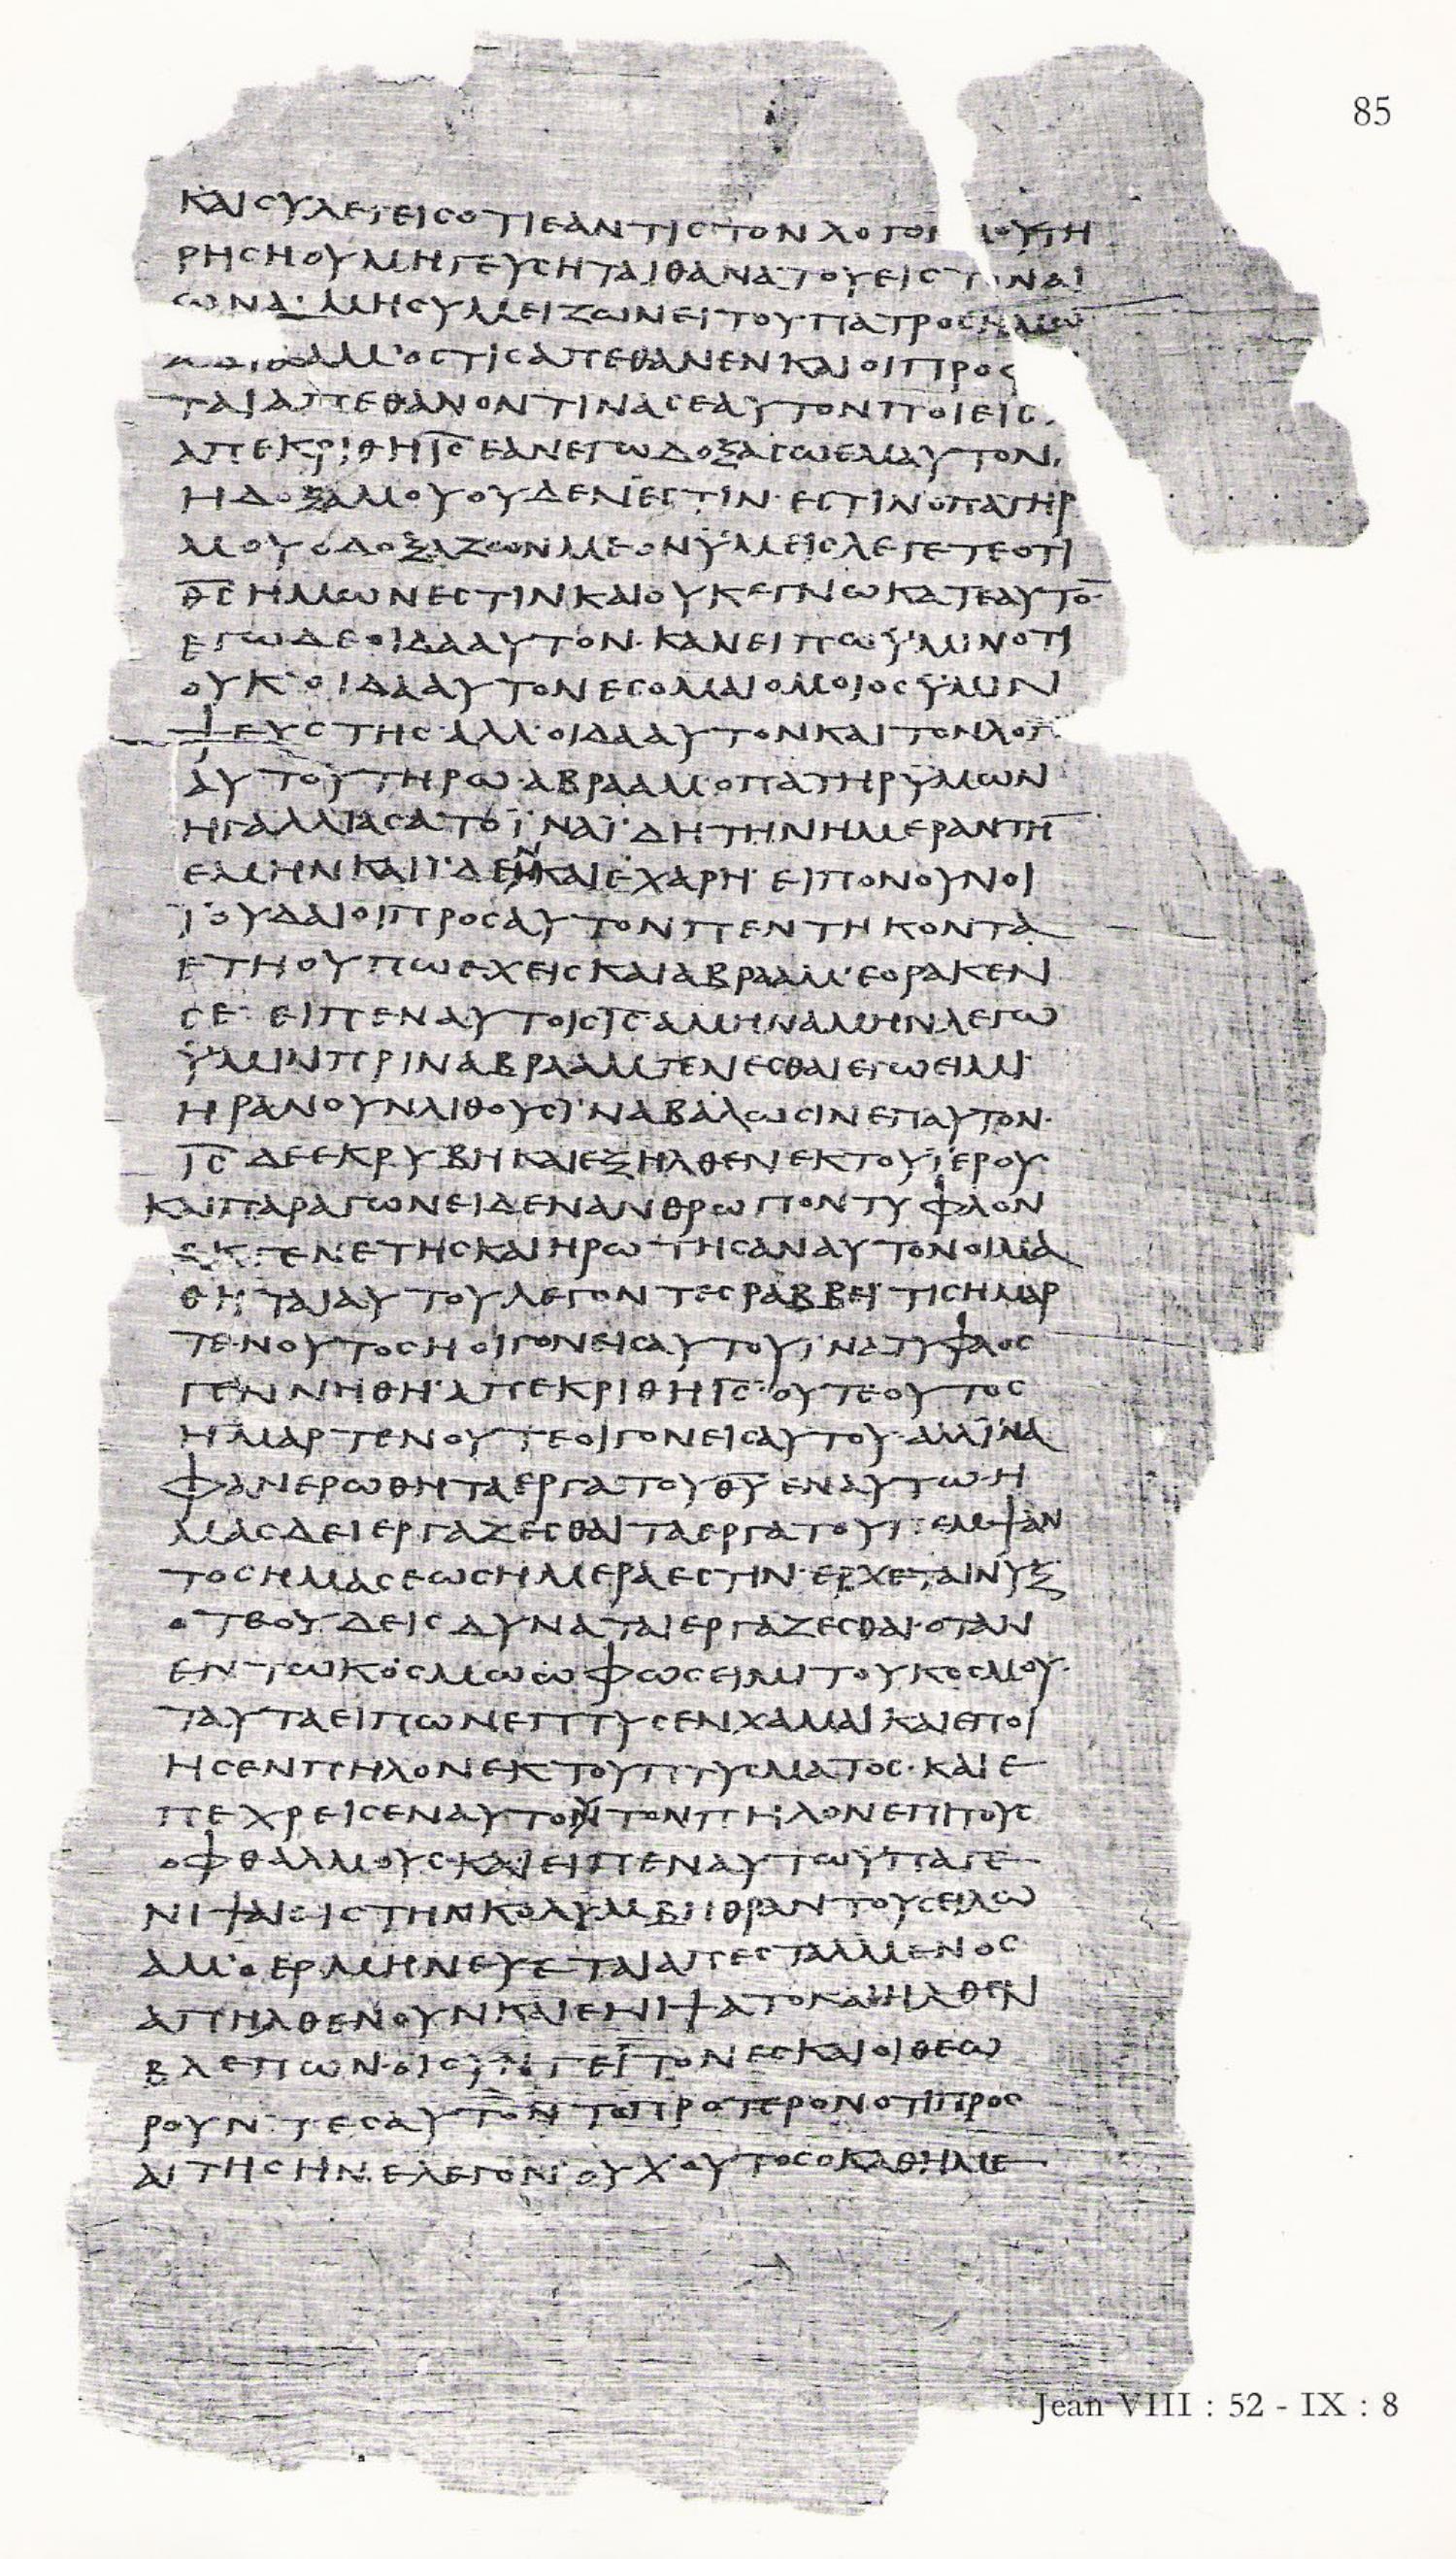 85
ΚΑΙ ΣΥ ΛΕΓΕΙΣ ΟΤΙ ΕΑΝ ΤΙΣ ΤΟΝ ΛΟΓΟΝ ΜΟΥ ΤΗ
ΡΗΣΗ ΟΥ ΜΗ ΓΕΥΣΗΤΑΙ ΘΑΝΑΤΟΥ ΕΙΣ ΤΟΝ ΑΙ
ΩΝΑ· ΜΗ ΣΥ ΜΕΙΖΩΝ ΕΙ ΤΟΥ ΠΑΤΡΟΣ ΗΜΩ
ΟΣΤΙΣ ΑΠΕΘΑΝΕΝ ΚΑΙ ΟΙ ΠΡΟΦ
ΤΑΙ ΑΠΕΘΑΝΟΝ ΤΙΝΑ ΣΕΑΥΤΟΝ ΠΟΙΕΙΣ·
ΑΠΕΚΡΙΘΗ Ι̅Σ̅ ΕΑΝ ΕΓΩ ΔΟΞΑΣΩ ΕΜΑΥΤΟΝ,
Η ΔΟΞΑ ΜΟΥ ΟΥΔΕΝ ΕΣΤΙΝ· ΕΣΤΙΝ Ο ΠΑΤΗΡ
ΜΟΥ Ο ΔΟΞΑΖΩΝ ΜΕ ΟΝ ΫΜΕΙΣ ΛΕΓΕΤΕ ΟΤΙ
Θ̅Σ̅ ΗΜΩΝ ΕΣΤΙΝ ΚΑΙ ΟΥΚ ΕΓΝΩΚΑΤΕ ΑΥΤΟ̅
ΕΓΩ ΔΕ ΟΙΔΑ ΑΥΤΟΝ· ΚΑΝ ΕΙΠΩ ΫΜΙΝ ΟΤΙ
ΟΥΚ ΟΙΔΑ ΑΥΤΟΝ ΕΣΟΜΑΙ ΟΜΟΙΟΣ ΫΜΙΝ
ΨΕΥΣΤΗΣ· ΑΛΛ' ΟΙΔΑ ΑΥΤΟΝ ΚΑΙ ΤΟΝ ΛΟΓ
ΑΥΤΟΥ ΤΗΡΩ· ΑΒΡΑΑΜ' Ο ΠΑΤΗΡ ΫΜΩΝ
ΗΓΑΛΛΙΑΣΑΤΟ ΪΝΑ ΪΔΗ ΤΗΝ ΗΜΕΡΑΝ ΤΗ̅
ΕΜΗΝ ΚΑΙ ΪΔΕΝ ΚΑΙ ΕΧΑΡΗ· ΕΙΠΟΝ ΟΥΝ ΟΙ
ΪΟΥΔΑΙΟΙ ΠΡΟΣ ΑΥΤΟΝ ΠΕΝΤΗΚΟΝΤΑ
ΕΤΗ ΟΥΠΩ ΕΧΕΙΣ ΚΑΙ ΑΒΡΑΑΜ' ΕΟΡΑΚΕΝ
ΣΕ· ΕΙΠΕΝ ΑΥΤΟΙΣ Ι̅Σ̅ ΑΜΗΝ ΑΜΗΝ ΛΕΓΩ
ΫΜΙΝ ΠΡΙΝ ΑΒΡΑΑΜ ΓΕΝΕΣΘΑΙ ΕΓΩ ΕΙΜΙ·
ΗΡΑΝ ΟΥΝ ΛΙΘΟΥΣ ΪΝΑ ΒΑΛΩΣΙΝ ΕΠ ΑΥΤΟΝ·
Ι̅Σ̅ ΔΕ ΕΚΡΥΒΗ ΚΑΙ ΕΞΗΛΘΕΝ ΕΚ ΤΟΥ ΪΕΡΟΥ·
ΚΑΙ ΠΑΡΑΓΩΝ ΕΙΔΕΝ ΑΝΘΡΩΠΟΝ ΤΥΦΛΟΝ
ΕΚ ΓΕΝΕΤΗΣ ΚΑΙ ΗΡΩΤΗΣΑΝ ΑΥΤΟΝ ΟΙ ΜΑ
ΘΗΤΑΙ ΑΥΤΟΥ ΛΕΓΟΝΤΕΣ ΡΑΒΒΕΙ ΤΙΣ ΗΜΑΡ
ΤΕΝ ΟΥΤΟΣ Η ΟΙ ΓΟΝΕΙΣ ΑΥΤΟΥ ΪΝΑ ΤΥΦΛΟΣ
ΓΕΝΝΗΘΗ· ΑΠΕΚΡΙΘΗ Ι̅Σ̅· ΟΥΤΕ ΟΥΤΟΣ
ΗΜΑΡΤΕΝ ΟΥΤΕ ΟΙ ΓΟΝΕΙΣ ΑΥΤΟΥ· ΑΛΛ ΪΝΑ
ΦΑΝΕΡΩΘΗ ΤΑ ΕΡΓΑ ΤΟΥ Θ̅Υ̅ ΕΝ ΑΥΤΩ· Η
ΜΑΣ ΔΕΙ ΕΡΓΑΖΕΣΘΑΙ ΤΑ ΕΡΓΑ ΤΟΥ ΠΕΜΨΑΝ
ΤΟΣ ΗΜΑΣ ΕΩΣ ΗΜΕΡΑ ΕΣΤΙΝ· ΕΡΧΕΤΑΙ ΝΥΞ
ΟΤΕ ΟΥΔΕΙΣ ΔΥΝΑΤΑΙ ΕΡΓΑΖΕΣΘΑΙ· ΟΤΑΝ
ΕΝ ΤΩ ΚΟΣΜΩ Ω ΦΩΣ ΕΙΜΙ ΤΟΥ ΚΟΣΜΟΥ·
ΤΑΥΤΑ ΕΙΠΩΝ ΕΠΤΥΣΕΝ ΧΑΜΑΙ ΚΑΙ ΕΠΟΙ
ΗΣΕΝ ΠΗΛΟΝ ΕΚ ΤΟΥ ΠΤΥΣΜΑΤΟΣ· ΚΑΙ Ε
ΠΕΧΡΕΙΣΕΝ ΑΥΤΟΥ ΤΟΝ ΠΗΛΟΝ ΕΠΙ ΤΟΥΣ
ΟΦΘΑΛΜΟΥΣ· ΚΑΙ ΕΙΠΕΝ ΑΥΤΩ ΫΠΑΓΕ
ΝΙΨΑΙ ΕΙΣ ΤΗΝ ΚΟΛΥΜΒΗΘΡΑΝ ΤΟΥ ΣΕΙΛΩ
ΑΜ' Ο ΕΡΜΗΝΕΥΕΤΑΙ ΑΠΕΣΤΑΛΜΕΝΟΣ
ΑΠΗΛΘΕΝ ΟΥΝ ΚΑΙ ΕΝΙΨΑΤΟ ΚΑΙ ΗΛΘΕΝ
ΒΛΕΠΩΝ· ΟΙ ΟΥΝ ΓΕΙΤΟΝΕΣ ΚΑΙ ΟΙ ΘΕΩ
ΡΟΥΝΤΕΣ ΑΥΤΟΝ ΤΟ ΠΡΟΤΕΡΟΝ ΟΤΙ ΠΡΟΣ
ΑΙΤΗΣ ΗΝ ΕΛΕΓΟΝ· ΟΥΧ ΟΥΤΟΣ Ο ΚΑΘΗΜΕ
Jean VIII : 52 - IX : 8